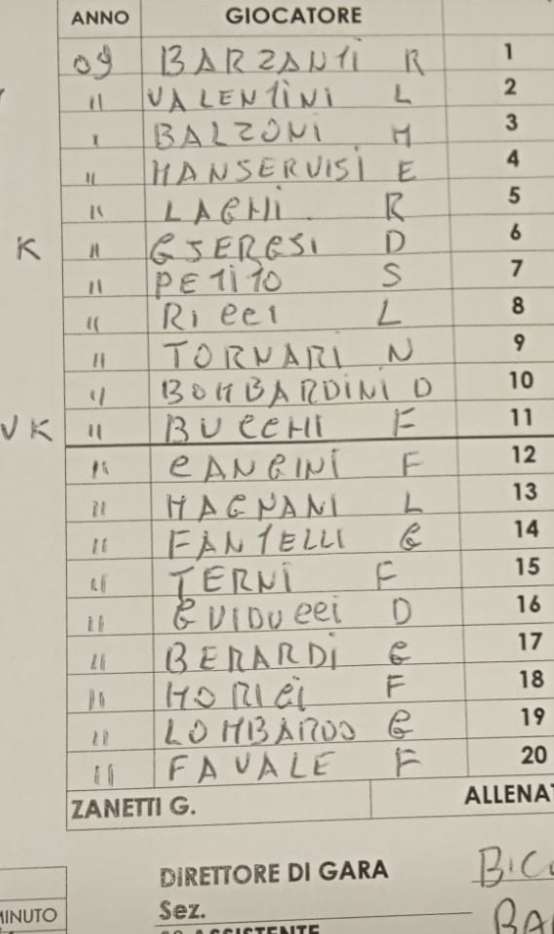 ANNO GIOCATORE
09 BARZANTI R 1
" VALENTINI L 2
" BALZONI M 3
" MANSERVISI E 4
" LAGHI R 5
K " GSERGSI D 6
" PETITO S 7
" RICCI L 8
" TORNARI N 9
" BOMBARDINI D 10
VK " BUCCHI F 11
" CANGINI F 12
" MAGNANI L 13
" FANTELLI G 14
" TERNI F 15
" GUIDUCCI D 16
" BERARDI G 17
" MORICI F 18
" LOMBARDO G 19
" FAVALE F 20
ZANETTI G. ALLENAT
DIRETTORE DI GARA
MINUTO Sez. BA